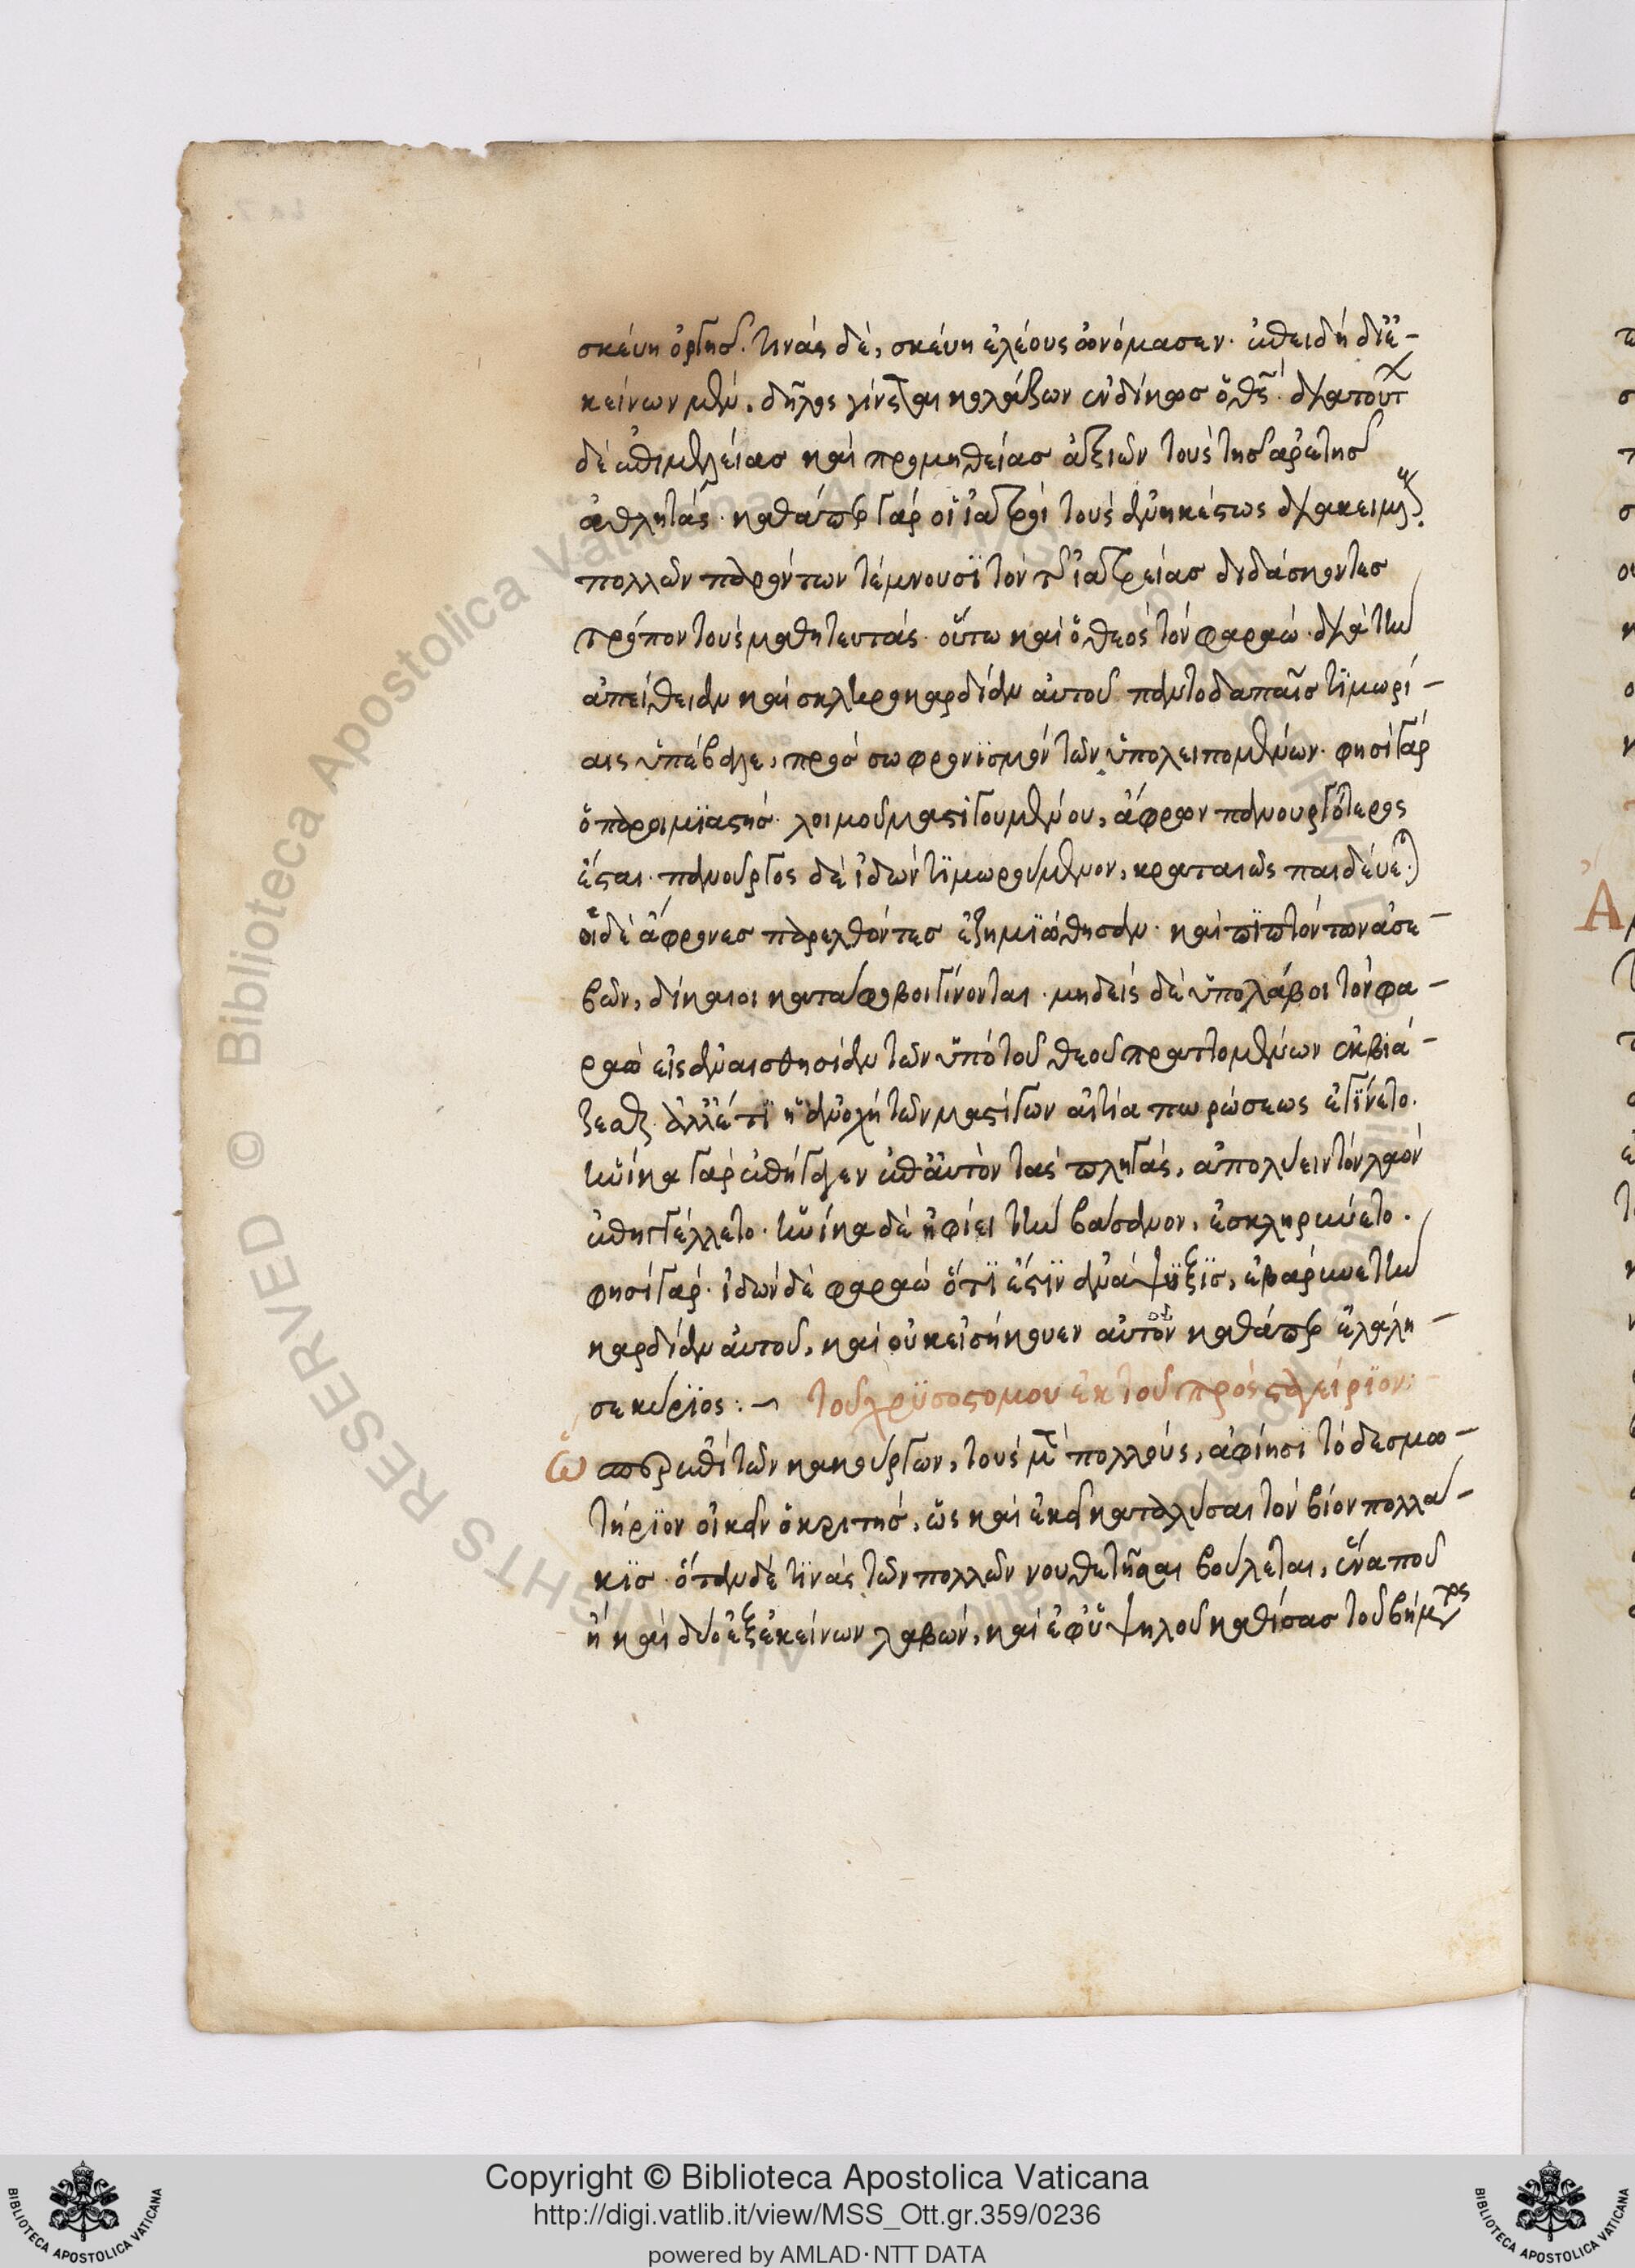 σκεύη ὀργῆσ. τινὰς δὲ, σκεύη ἐλέους ὠνόμασεν. ἐπειδὴ δι' ἐ-
κείνων μὲν, δῆλος γίνεται κολάζων ἐνδίκωσ ὁ θσ. διὰ τούτ
δὲ ἐπιμελείασ καὶ προμηθείασ ἀξιῶν τοὺς τῆσ ἀρετῆσ
ἀθλητάς. καθάπερ γὰρ οἱ ἰατροὶ τοὺς ἀνηκέστως διακειμ
πολλῶν παρόντων τέμνουσϊ τὸν τῆς ἰατρείασ διδάσκοντεσ
τρόπον τοὺς μαθητευτάς. οὕτω καὶ ὁ θεὸς τὸν φαραώ. διὰ τὴν
ἀπείθειαν καὶ σκληροκαρδίαν αὐτοῦ παντοδαπαῖσ τϊμωρί-
αις ὑπέβαλε, πρὸσ σωφρονϊσμὸν τῶν ὑπολειπομένων. φησὶ γὰρ
ὁ παροιμϊαστήσ. λοιμοῦ μαστιγουμένου, ἄφρων πανουργότερος
ἔσται. πανοῦργος δὲ ἰδὼν τϊμωρούμενον, κραταιῶς παιδεύε
οἱ δὲ ἄφρονεσ παρελθόντεσ ἐζημϊώθησαν. καὶ πϊπτόντων ἀσε-
βῶν, δίκαιοι κατάφοβοι γίνονται. μηδεὶς δὲ ὑπολάβοι τὸν φα-
ραὼ εἰς ἀναισθησίαν τῶν ὑπὸ τοῦ θεοῦ πραττομένων ἐκβιά-
ζεσθαι. ἀλλ' ἔτϊ ἡ ἀνοχὴ τῶν μαστίγων αἰτία πωρώσεως ἐγΐνετο.
ἡνίκα γὰρ ἐπήγαγεν ἐπ' αὐτὸν τὰς πληγὰς, ἀπολύειν τὸν λαὸν
ἐπηγγέλλετο. ἡνίκα δὲ ἠφίει τὴν βάσανον, ἐσκληρύνετο.
φησὶ γάρ. ἰδὼν δὲ φαραὼ ὅτϊ ἔστϊν ἀνάψϋξϊσ, ἐβαρύνετο τὴν
καρδίαν αὐτοῦ, καὶ οὐκ εἰσήκουεν αὐτὸν καθάπερ ἐλάλη-
σε κύρϊος :.
τοῦ χρϋσοστομου ἐκ τοῦ πρὸς σταγείρϊον:-
ὥσπερ ἐπὶ τῶν κακούργων, τοὺς μὲν πολλοὺς, ἀφίησι τὸ δεσμω-
τήρϊον οἰκεῖν ὁ κριτής, ὡς καὶ ἐκεῖ καταλῦσαι τὸν βίον πολλά-
κϊσ. ὅταν δέ τϊνας τῶν πολλῶν νουθετῆσαι βούλεται, ἕνα που
ἢ καὶ δύο ἐξ ἐκείνων λαβὼν, καὶ ἐφ' ὑψηλοῦ καθίσασ τοῦ βήματος